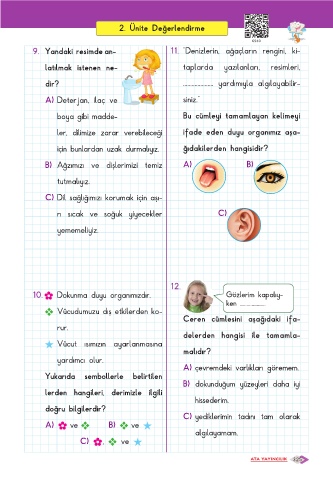 2. Ünite Değerlendirme
9. Yandaki resimde an-
latılmak istenen ne-
dir?
A) Deterjan, ilaç ve
boya gibi madde-
ler, dilimize zarar verebileceği
için bunlardan uzak durmalıyız.
B) Ağzımızı ve dişlerimizi temiz
tutmalıyız.
C) Dil sağlığımızı korumak için aşı-
rı sıcak ve soğuk yiyecekler
yememeliyiz.
10. Dokunma duyu organımızdır.
Vücudumuzu dış etkilerden ko-
rur.
Vücut ısımızın ayarlanmasına
yardımcı olur.
Yukarıda sembollerle belirtilen
lerden hangileri, derimizle ilgili
doğru bilgilerdir?
A) ve
B) ve
C) , ve
11. "Denizlerin, ağaçların rengini, ki-
taplarda yazılanları, resimleri,
.................. yardımıyla algılayabilir-
siniz."
Bu cümleyi tamamlayan kelimeyi
ifade eden duyu organımız aşa-
ğıdakilerden hangisidir?
A)
B)
C)
12.
Gözlerim kapalıy-
ken ..............
Ceren cümlesini aşağıdaki ifa-
delerden hangisi ile tamamla-
malıdır?
A) çevremdeki varlıkları göremem.
B) dokunduğum yüzeyleri daha iyi
hissederim.
C) yediklerimin tadını tam olarak
algılayamam.
ATA YAYINCILIK